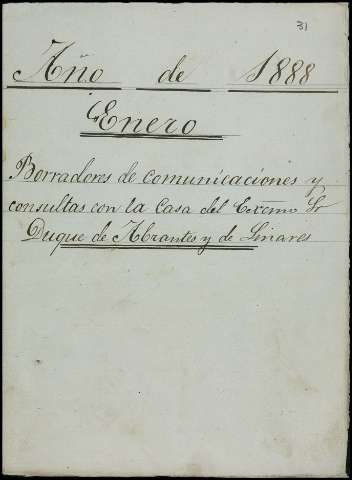 31
Año de 1888
Enero
Borradores de comunicaciones y
consultas con la Casa del Excmo Sr
Duque de Abrantes y de Linares